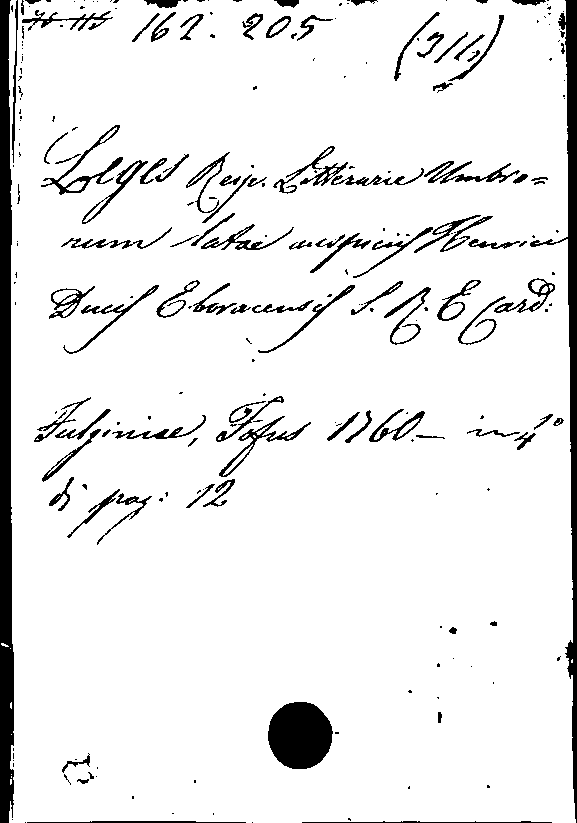 162. 205 (3/16)
Leges Reip. Littèrarie Umbro=
rum latae auspiciis Henrici
Ducis Eboracensis S. R. E Card:
Fulginiae, Fofus 1760.— in 4°
di pag: 12